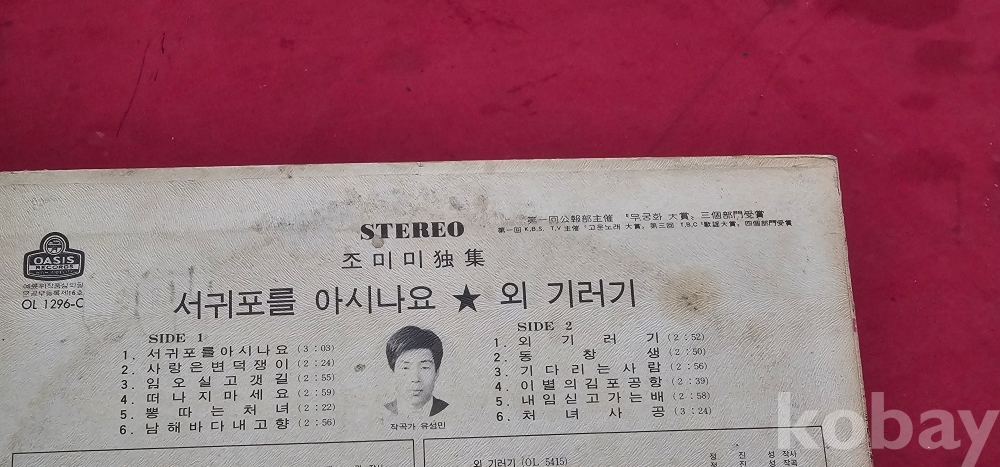 第一回公報部主催 『무궁화 大賞』 三個部門受賞
第一回 K.B.S. T.V 主催 『고운노래 大賞』 第三回 T.B.C 『歌謠大賞』 四個部門受賞
STEREO
조미미独集
OASIS
RECORDS
OL 1296-C
서귀포를 아시나요 ★ 외 기러기
SIDE 1
1. 서귀포를아시나요 (3:03)
2. 사랑은변덕쟁이 (2:24)
3. 임오실고갯길 (2:55)
4. 떠나지마세요 (2:59)
5. 뽕따는처녀 (2:22)
6. 남해바다내고향 (2:56)
작곡가 유성민
SIDE 2
1. 외기러기 (2:52)
2. 동창생 (2:50)
3. 기다리는사람 (2:56)
4. 이별의김포공항 (2:39)
5. 내임싣고가는배 (2:58)
6. 처녀사공 (3:24)
외 기러기 (OL 5415)
정진성 작사
정진성 작곡
kobay